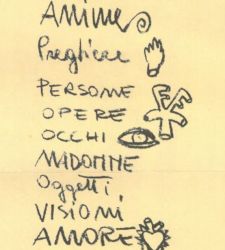 Anime
Preghiere
PERSONE
OPERE
OCCHI
MADONNE
Oggetti
VISIONI
AMORE